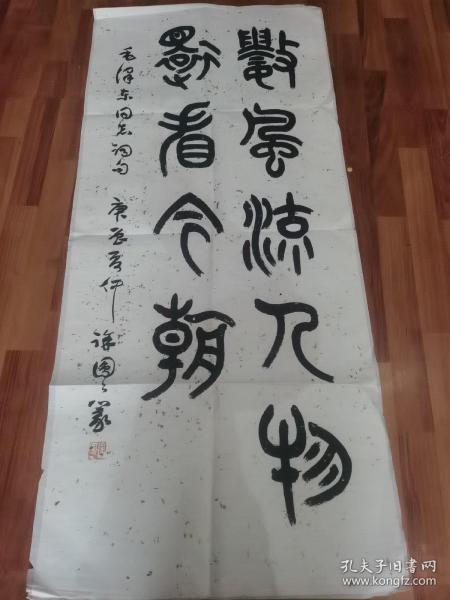 數風流人物
還看今朝
毛泽东同志词句 庚辰夏 篆
孔夫子旧书网
www.kongfz.com